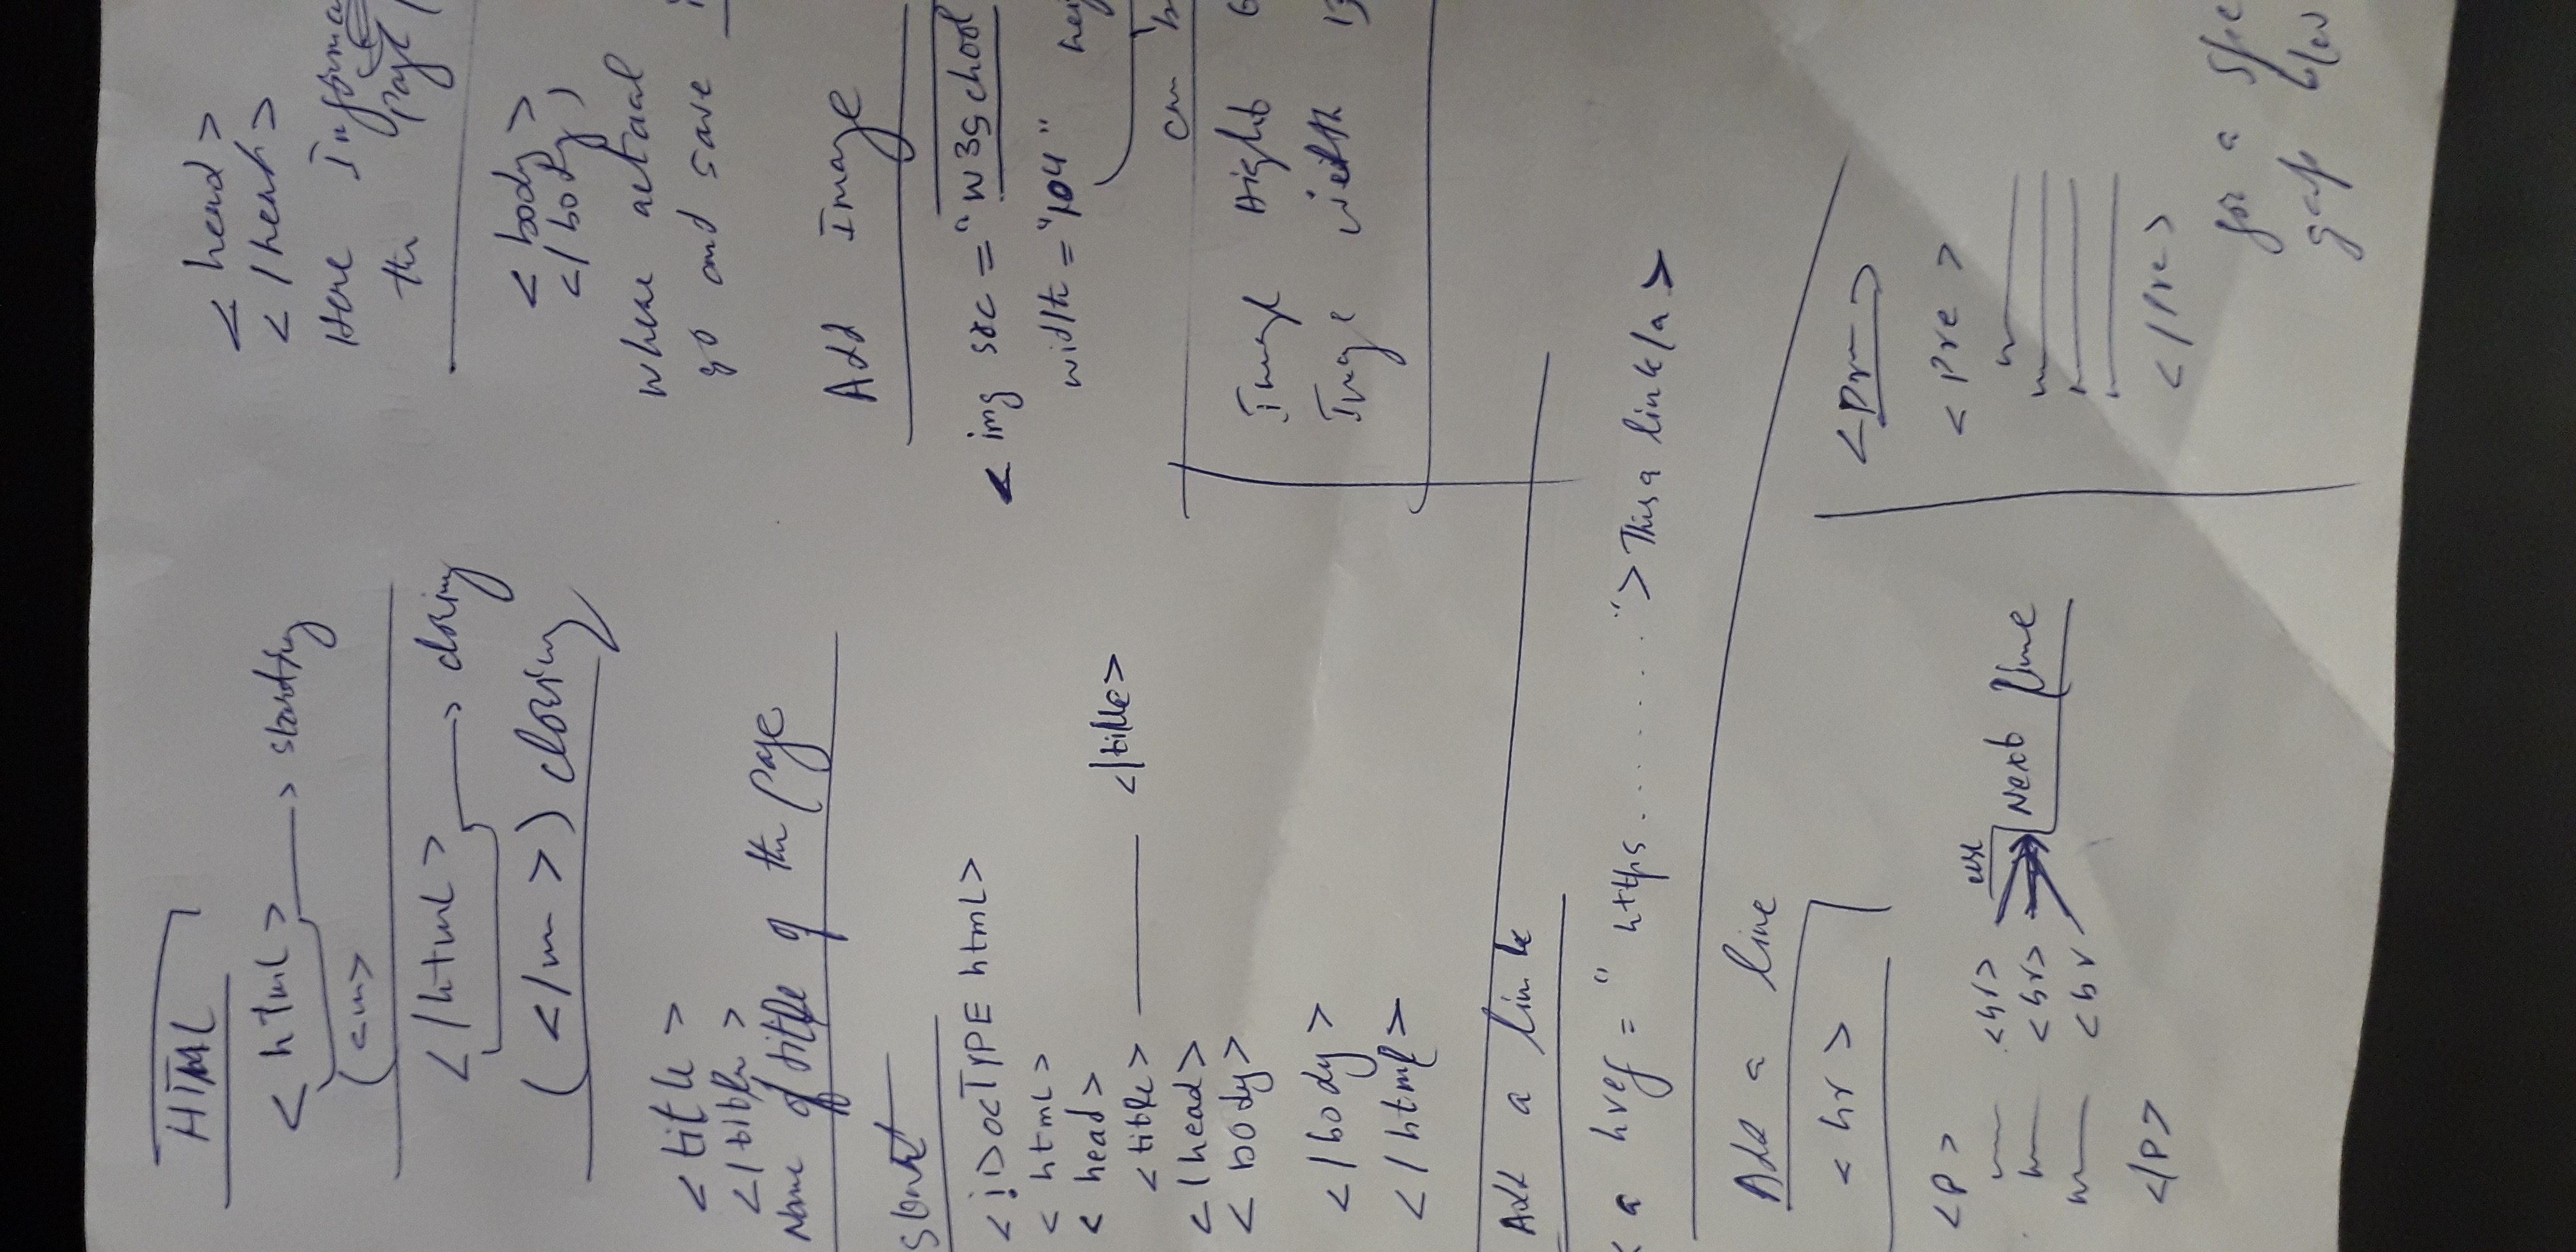 HTML
< html > → starting
(<m>
< /html > → closing
(</m >) closing
< title >
</title >
Name of title of the Page
Start
< !DOCTYPE html>
< html >
< head >
< title > </title>
< /head >
< body >
< /body >
< /html >
Add a link
< a href = " https........."> This a link/a >
Add a line
< hr >
<P>
<br> use
<br> Next line
<br
</P>
< head >
< /head >
Here
the page
< body >
< /body >
where actual
go and save
Add Image
< img src = "w3school
width = "104"
cm
Image Hight 6
Image width 13
<Pre>
< Pre >
< /Pre >
for a
gap